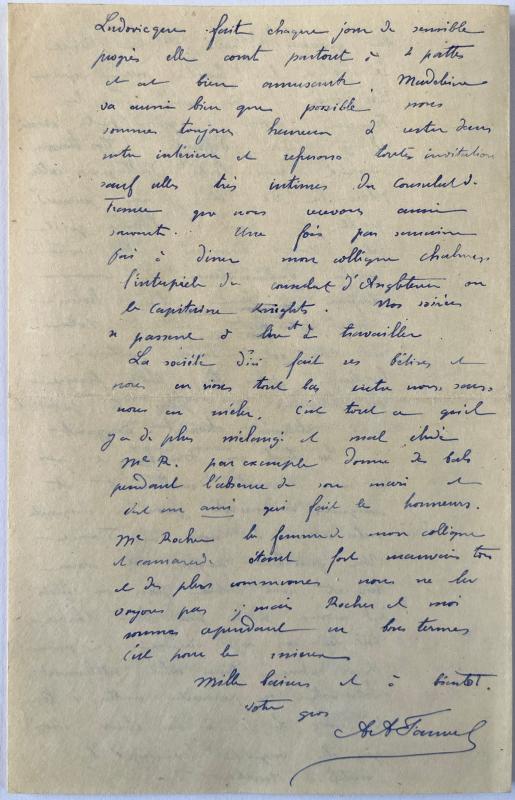 Ludovicque fait chaque jour de sensible
progrès elle court partout à 4 pattes
et est bien amusante. Madeleine
va aussi bien que possible nous
sommes toujours heureux d rester dans
notre interieur et refusons toutes invitations
sauf celles très intimes du Consulat de
France que nous recevons aussi
souvent. Une fois par semaine
j'ai à diner mon collègue
l'interprète du consulat d'Angleterre ou
le Capitaine Knights. Nos soirées
se passent à lire et à travailler
La société d'ici fait ses bêtises et
nous en rions tout bas entre nous sans
nous en mêler. C'est tout ce qu'il
y a de plus mélangé et mal élevé
Me R. par exemple donne des bals
pendant l'absence de son mari et
c'est un ami qui fait les honneurs.
Me Rocher la femme de mon collègue
et camarade étant fort mauvais ton
et des plus communes nous ne la
voyons pas, mais Rocher et moi
sommes cependant en bons termes
c'est pour le mieux
Mille baisers et à bientôt.
Votre gros